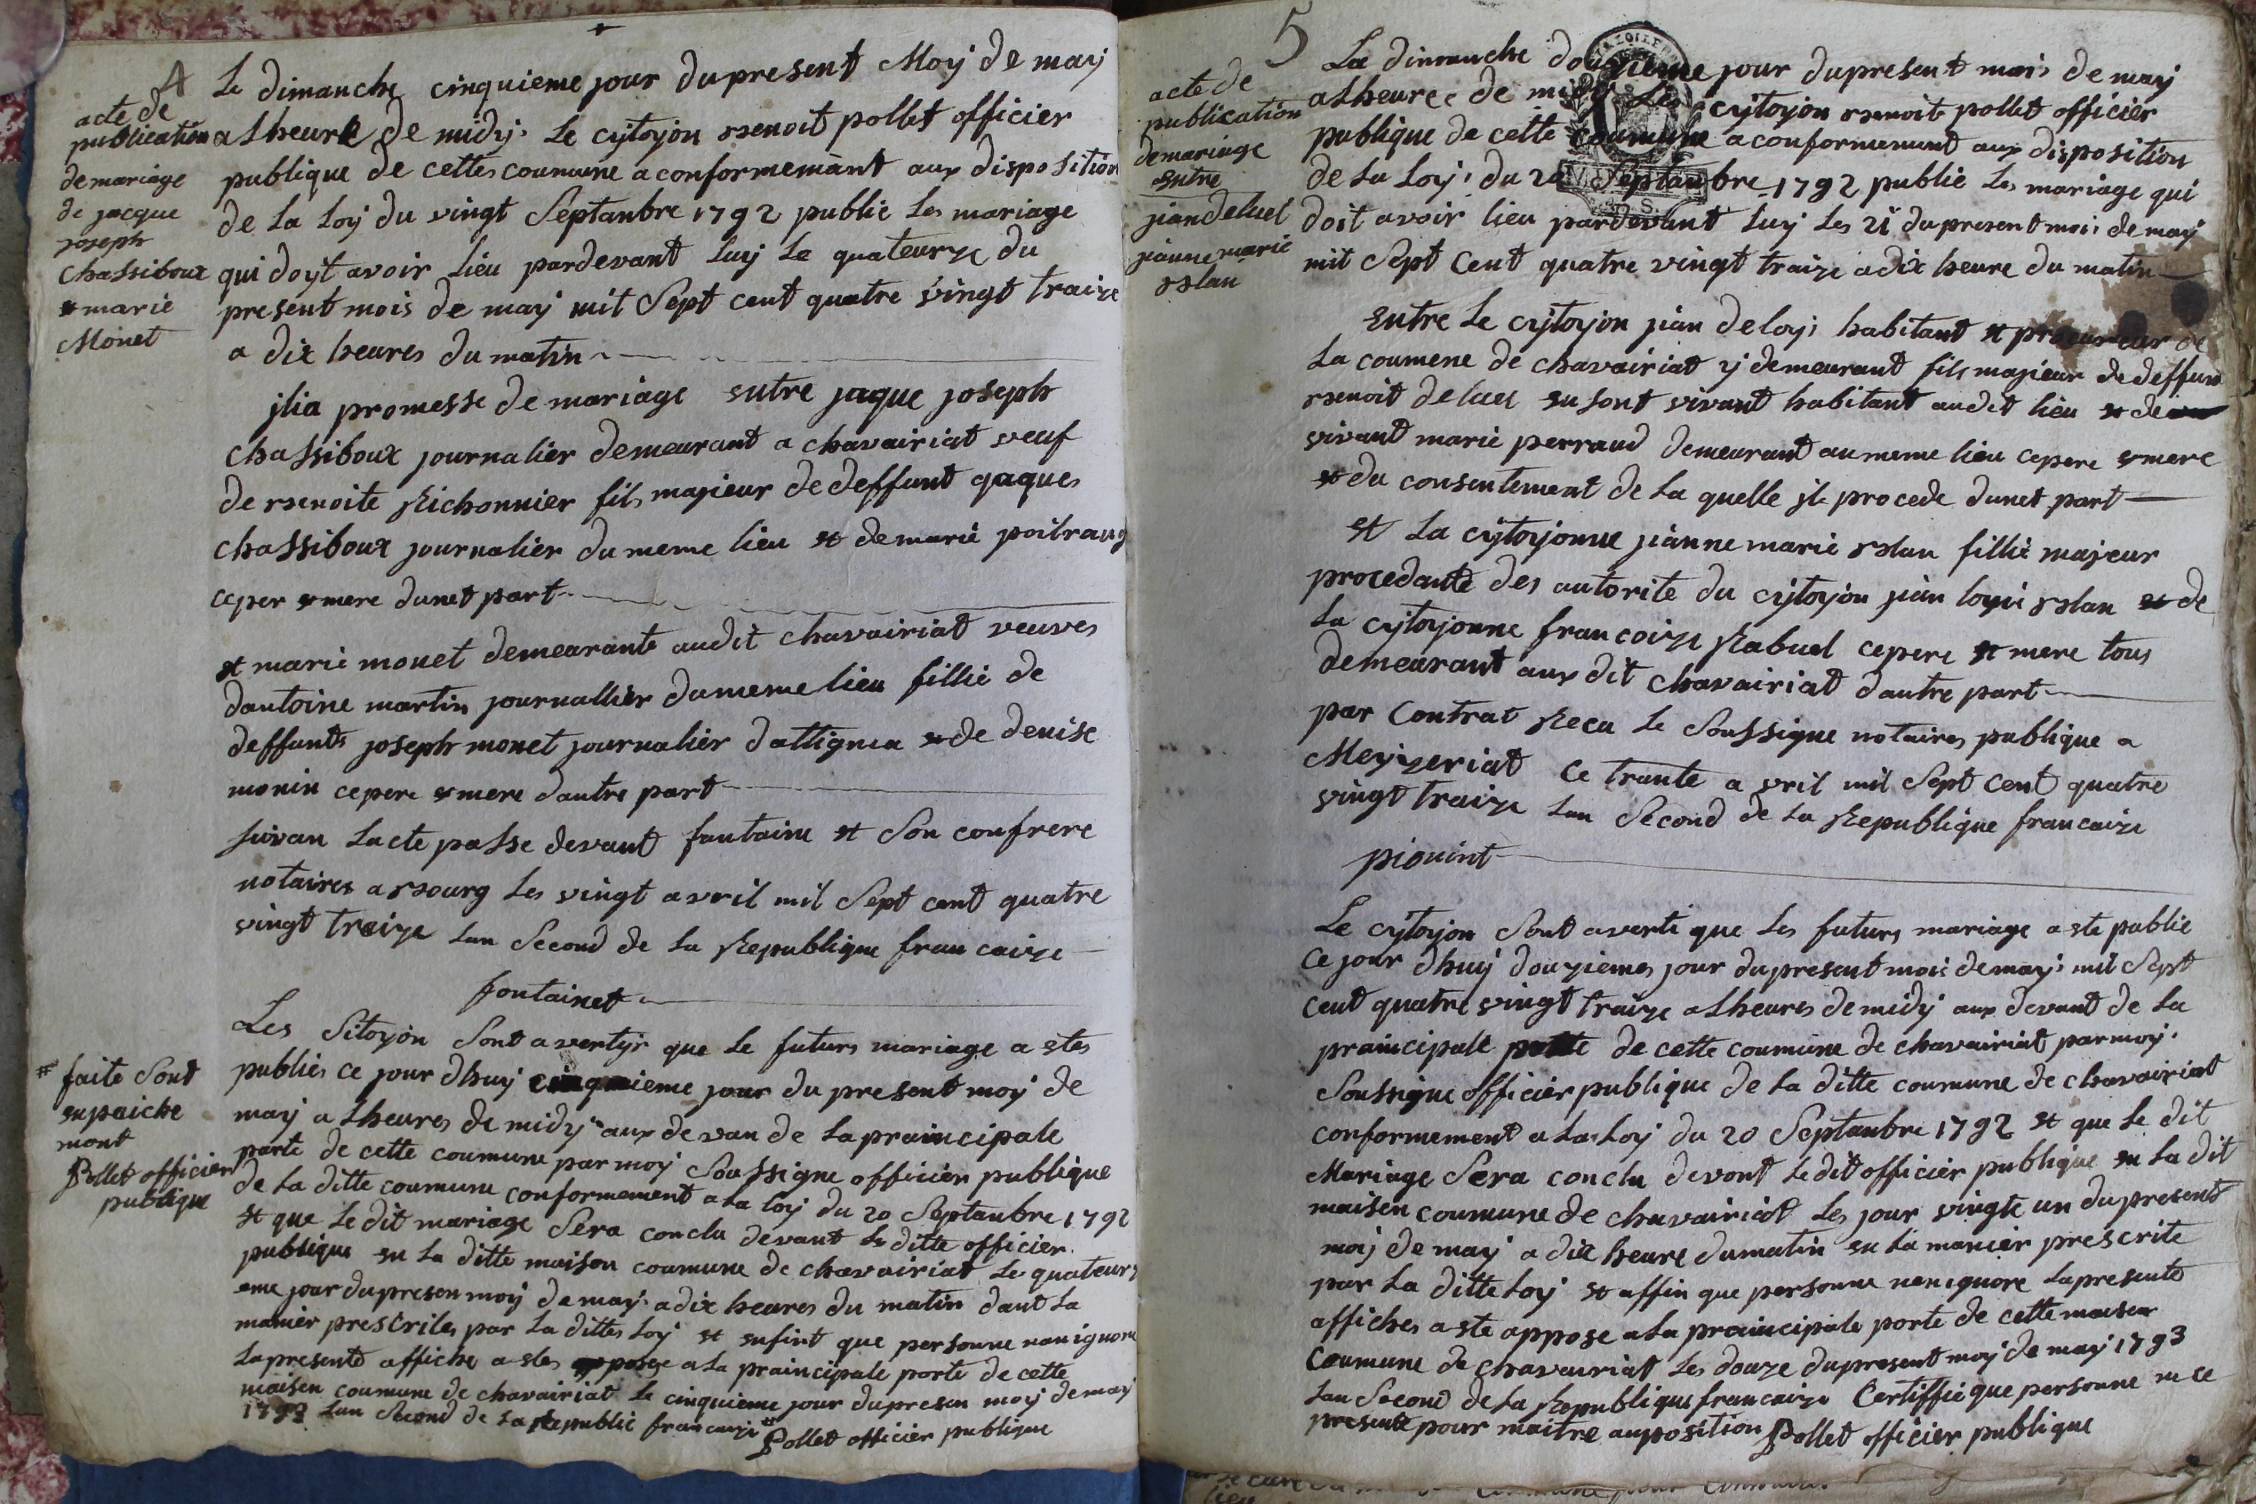 4
acte de
publication
de mariage
de jacque
joseph
Chassiboux
et marie
Monet
Le dimanche cinquieme jour du present Moy de may
a Lheure de midy. Le cytoyon Benoit pollet officier
publique de cettes coumune a conformemant aux disposition
de La Loy du vingt Septanbre 1792 publie Les mariage
qui doyt avoir Lieu pardevant Luy Le quateurze du
present mois de may mil Sept cent quatre vingt traize
a dix heures du matin
jlia promesse de mariage entre jaque joseph
chassiboux journalier demeurant a chavairiat veuf
de Benoite Richonnier fils majieur de deffunt jaques
chassiboux journalier du meme lieu et de marie poitrang
ceper et mere dunet part
et marie monet demeurante audit chavairiat veuves
dantoine martin journallier du meme lieu fillie de
deffunts joseph monet journalier dattignia et de denise
monin cepere et mere dautre part
suivan Lacte passe devant fantaine et Son confrere
notaires a Bourg Les vingt avril mil Sept cent quatre
vingt traize Lan Second de La Republique francaize
fontainet
Les Sitoyon Sont avertyr que Le futurs mariage a etes
publies ce jour dhuy cinquieme jour du present moy de
may a Lheures de midy aux devan de La praincipale
parte de cette coumune par moy Soussigne officier publique
de La ditte coumune conformement a La loy du 20 Septanbre 1792
et que Le dit mariage Sera conclu devant Le ditte officier
publique en La ditte maison coumune de chavairiat Le quateurz
eme jour du presen moy de may a dix heures du matin dant La
manier prescrites par La dittes Loy et enfint que personne nan ignore
La presente affiche a etes apposee a La praincipale porte de cette
maisen coumune de chavairiat Le cinquieme jour du presen moy de may
1793 Lan Second de La Republic francaize #
Pollet officier publique
# faite Sont
enpaiche
mont
Pollet officier
publique
5
acte de
publication
de mariage
entre
jian deluel
jianne marie
Bilan
Le dimanche douzieme jour du present mois de may
a Lheure de midy Les cytoyon Benoit pollet officier
publique de cette coumune a conformement aux disposition
de La Loy du 20 Septanbre 1792 publie Les mariage qui
doit avoir lieu pardevant Luy Les 21 du present mois de may
mil Sept Cent quatre vingt traize a dix heure du matin
entre Le cytoyon jian deloy habitant et procureur de
La coumene de chavairiat y demeurant fils majieur de deffun
Benoit deluel en Sont vivant habitant audit lieu et de
vivant marie perraud demeurant au meme lieu cepere et mere
et du consentement de La quelle jl procede dunet part
et La cytoyonne jianne marie Bilan fillie majeur
procedante des autorite du cytoyon jian loyi Bilan et de
La cytoyonne francoize Rabuel cepere et mere tous
demeurant aux dit chavairiat dautre part
par Contrat Recu Le Soussigne notaires publique a
Meyzeriat Ce trante a vril mil Sept Cent quatre
vingt traize Lan Second de La Republique francaize
piquint
Le cytoyon Sont averti que Les futurs mariage a ete publie
Ce jour dhuy douziemes jour du present mois de may mil Sept
Cent quatre vingt traize a Lheures de midy aux devant de La
praincipale porte de cette coumune de chavairiat par moy
Soussigne officier publique de La ditte coumune de chavairiat
conformement a La Loy du 20 Septanbre 1792 et que Le dit
Mariage Sera conclu devont Le dit officier publique en La dit
maisen coumune de chavairiat Les jour vingte un du present
moy de may a dix heure du matin en La manier prescrite
par La ditte Loy et affin que personne nan ignore La presente
affiches a ete appose a La praincipale porte de cette maisen
Coumune de chavauriat Les douze du present moy de may 1793
Lan Second de La Republique francaize Certiffie que personne ne ce
presente pour maitre auposition Pollet officier publique